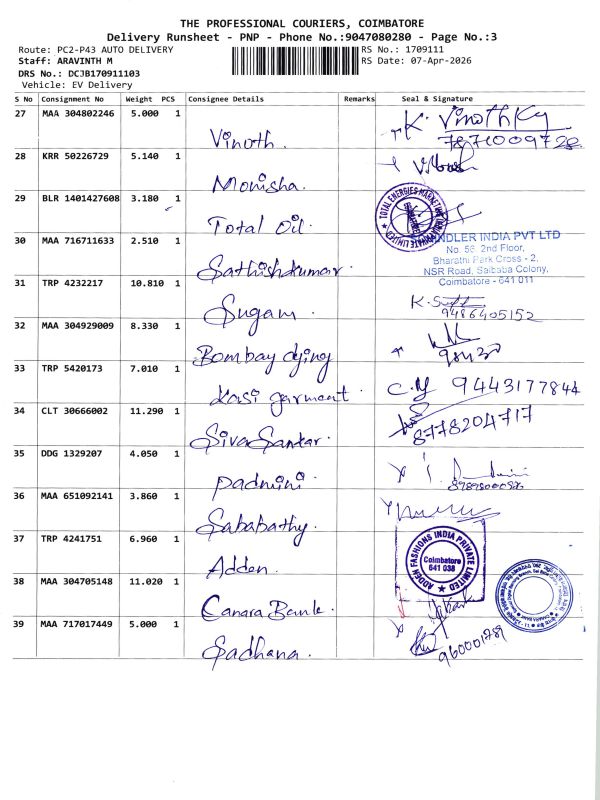 THE PROFESSIONAL COURIERS, COIMBATORE
Delivery Runsheet - PNP - Phone No.:9047080280 - Page No.:3
Route: PC2-P43 AUTO DELIVERY
RS No.: 1709111
Staff: ARAVINTH M
RS Date: 07-Apr-2026
DRS No.: DCJB170911103
Vehicle: EV Delivery
S No Consignment No Weight PCS Consignee Details Remarks Seal & Signature
27 MAA 304802246 5.000 1 Vinoth. K. Vinoth Ky
7871009728
28 KRR 50226729 5.140 1 Monisha.
29 BLR 1401427608 3.180 1 Total Oil.
TOTAL ENERGIES MARKETING INDIA PRIVATE LIMITED
30 MAA 716711633 2.510 1 Sathishkumar.
INDIA PVT LTD
No. 56, 2nd Floor,
Bharathi Park Cross - 2,
NSR Road, Saibaba Colony,
Coimbatore - 641 011
31 TRP 4232217 10.810 1 Sugam.
9486405152
32 MAA 304929009 8.330 1 Bombay dying
98430
33 TRP 5420173 7.010 1 Kasi garment. C.M 9443177844
34 CLT 30666002 11.290 1 Siva Sankar.
8778204717
35 DDG 1329207 4.050 1 Padmini.
36 MAA 651092141 3.860 1 Sababathy.
37 TRP 4241751 6.960 1 Adden.
ADDEN FASHIONS INDIA PRIVATE LIMITED
Coimbatore
641 038
38 MAA 304705148 11.020 1 Canara Bank.
39 MAA 717017449 5.000 1 Sadhana.
960001789